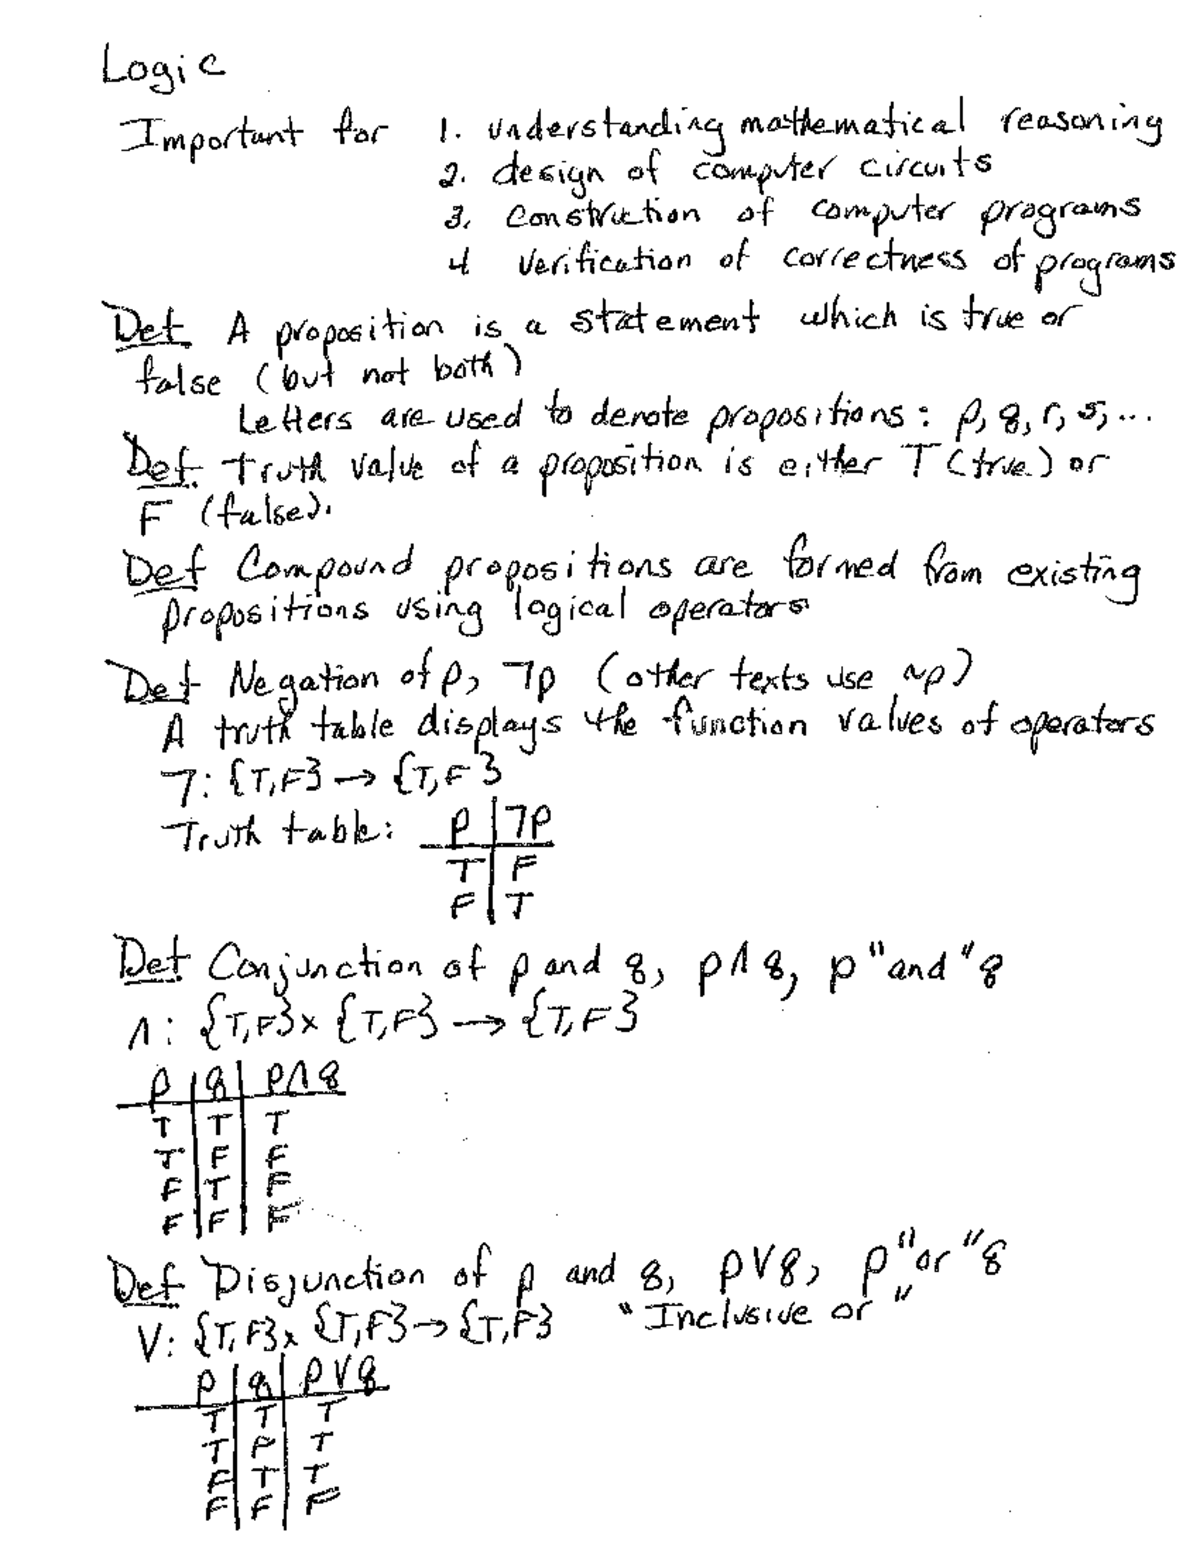 Logic
Important for 1. understanding mathematical reasoning
2. design of computer circuits
3. construction of computer programs
4 verification of correctness of programs
Def. A proposition is a statement which is true or
false (but not both)
Letters are used to denote propositions: p, q, r, s, ...
Def. Truth value of a proposition is either T (true) or
F (false).
Def Compound propositions are formed from existing
propositions using logical operators
Def Negation of p, ¬p (other texts use ~p)
A truth table displays the function values of operators
¬: {T,F} → {T,F}
Truth table: p | ¬p
T | F
F | T
Def Conjunction of p and q, p∧q, p "and" q
∧: {T,F} x {T,F} → {T,F}
p | q | p∧q
T | T | T
T | F | F
F | T | F
F | F | F
Def Disjunction of p and q, p∨q, p "or" q
∨: {T,F} x {T,F} → {T,F} "Inclusive or"
p | q | p∨q
T | T | T
T | F | T
F | T | T
F | F | F